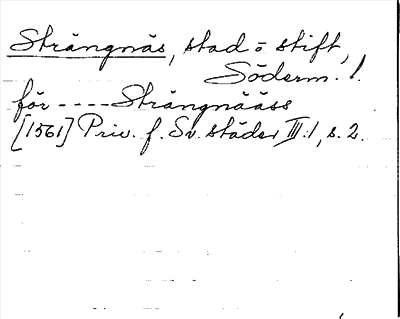 Strängnäs, stad o stift,
Söderm. l.
för ---- Strängnääss
[1561] Priv. f. Sv. städer III:1, s. 2.